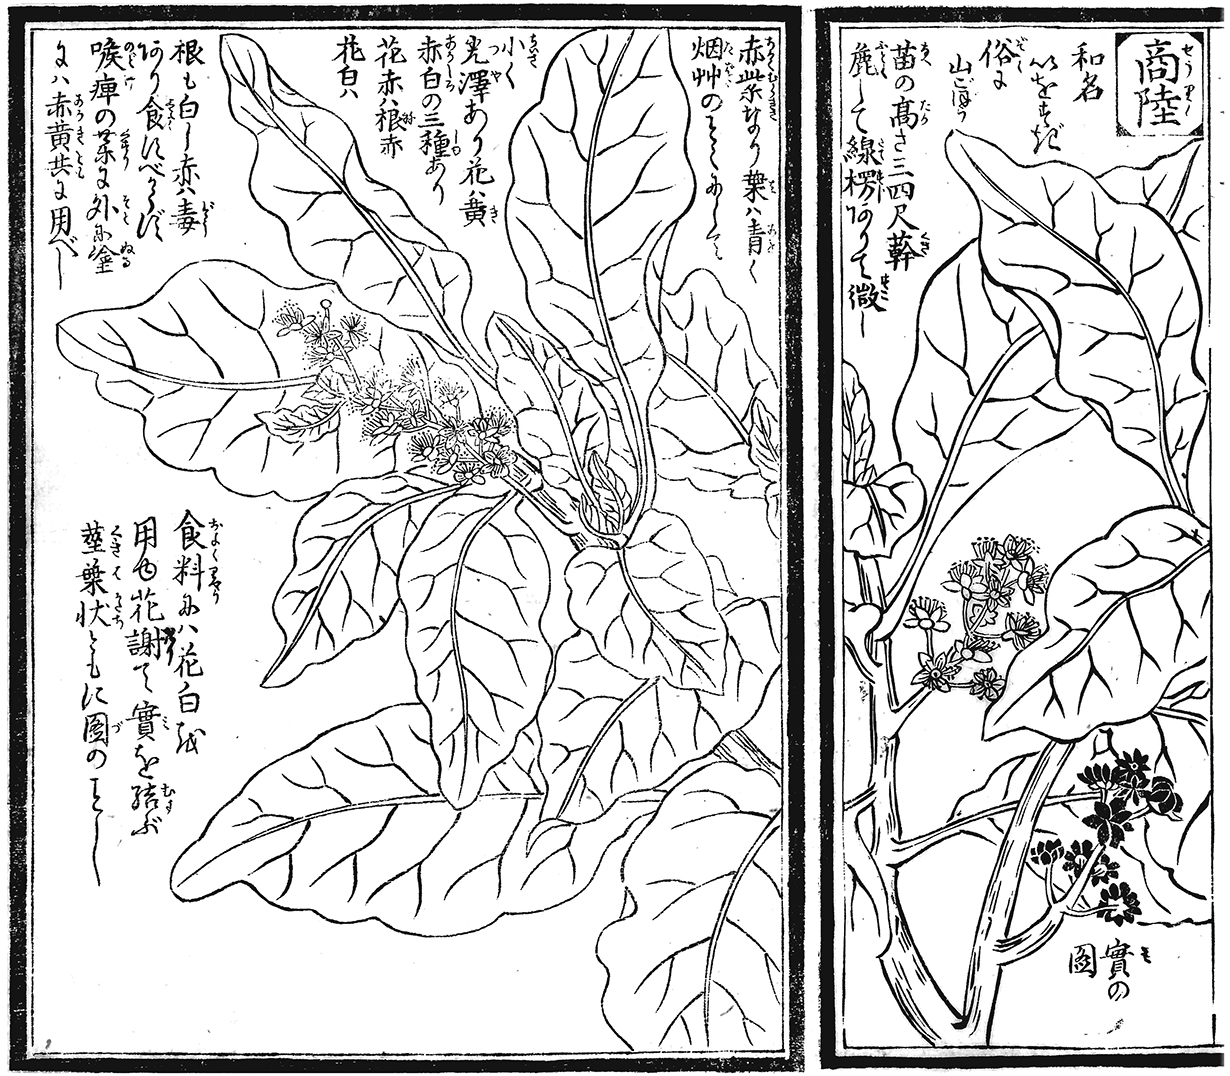 商陸
和名
いをすぎ
俗に
山ごぼう
苗の高さ三四尺幹
麁して線楞ありて微し
實の
圖
赤紫なり葉ハ青く
烟艸のごとくにして
小く
光澤あり花ハ黄
赤白の三種あり
花赤ハ根赤
花白ハ
根も白し赤ハ毒
あり食すべからず
喉痺の薬に外に塗
にハ赤黄共に用べし
食料にハ花白を
用ゆ花謝て實を結ぶ
莖葉状ともに圖のごとし